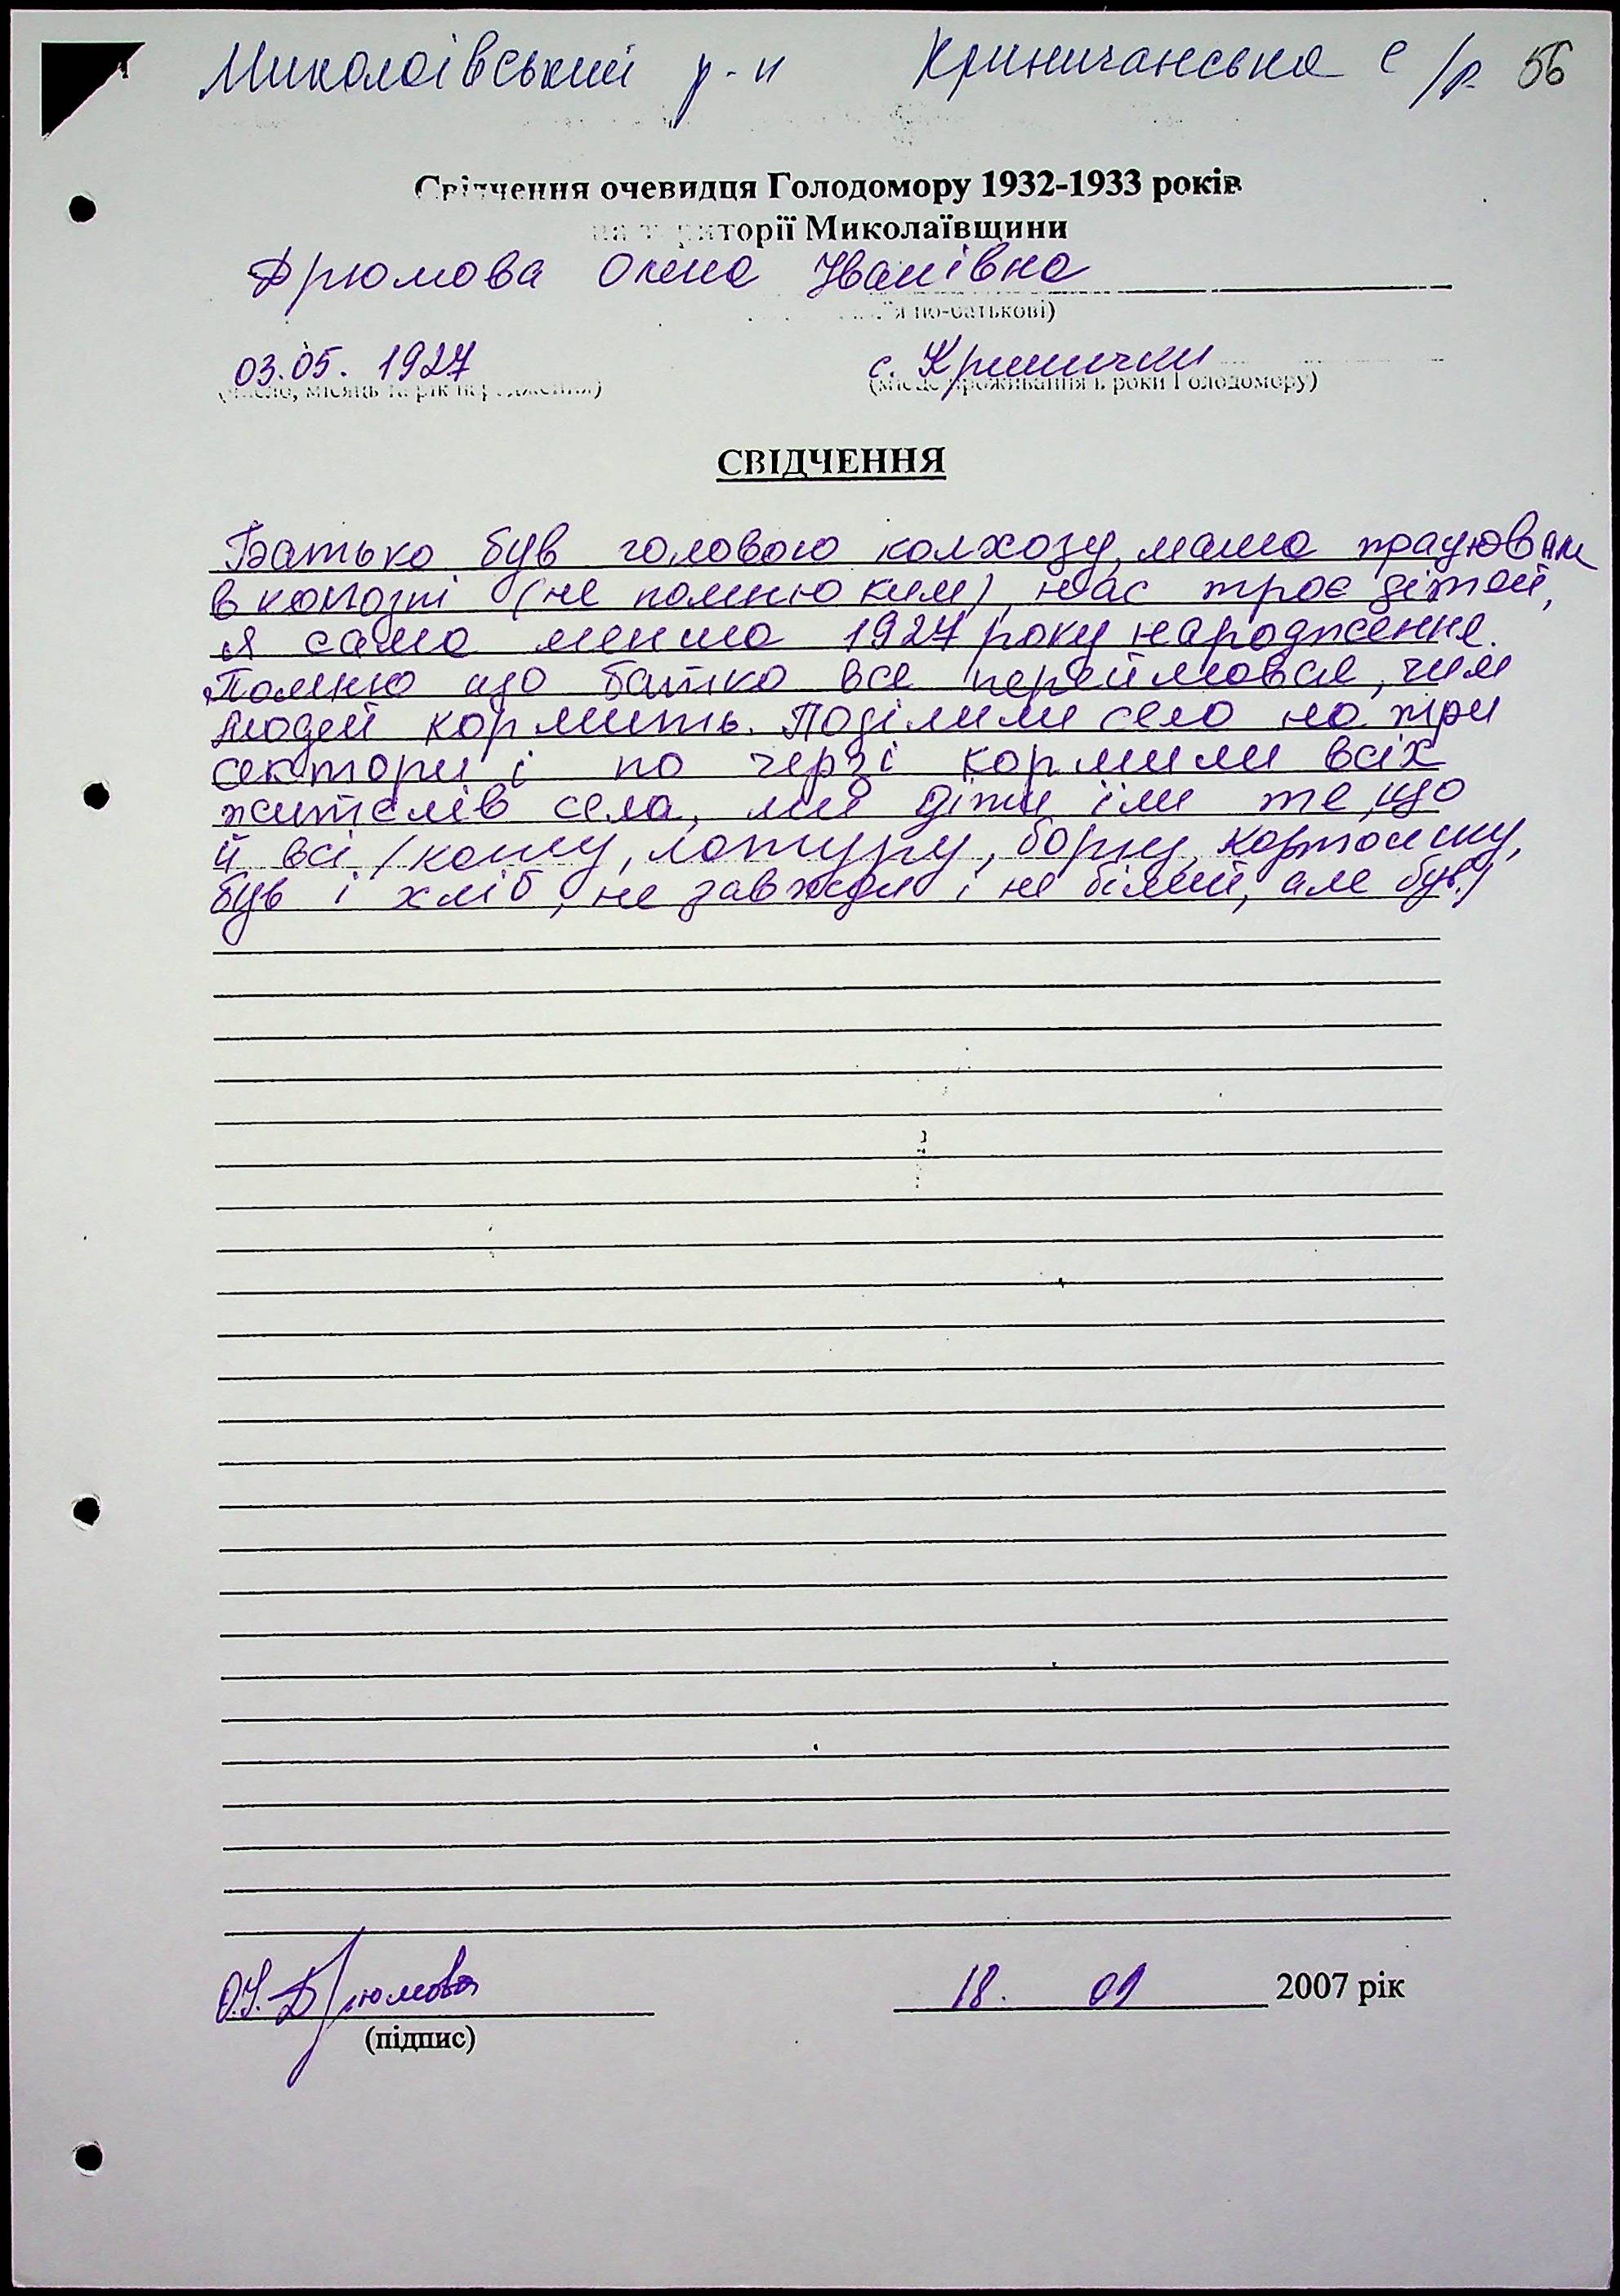 Миколаївський р-н Криничанська с/р. 56
Свідчення очевидця Голодомору 1932-1933 років
на території Миколаївщини
Дрюмова Олена Іванівна
'я по-батькові)
03.05. 1927 с. Кринички
(число, місяць та рік народження) (місце проживання в роки Голодомору)
СВІДЧЕННЯ
Батько був головою колхозу, мама працювала
в колгозпі (не помню ким), нас троє дітей,
я сама менша 1927 року народження.
Помню що батько все переймався, чим
людей кормить. Поділили село на три
сектори і по черзі кормили всіх
жителів села, ми діти їли те, що
й всі /кашу, затірку, борщ, картошку,
був і хліб, не завжди і не білий, але був./
О.І. Дрюмова 18. 09 2007 рік
(підпис)